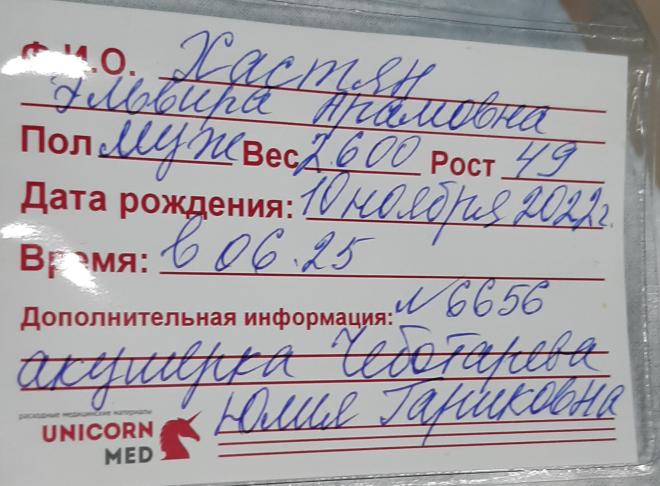 Ф.И.О. Хастян
Эльвира Арамовна
Пол муж Вес 2.600 Рост 49
Дата рождения: 10 ноября 2022г.
Время: в 06.25
Дополнительная информация: N6656
акушерка Чеботарева
Юлия Гариковна
расходные медицинские материалы
UNICORN
MED